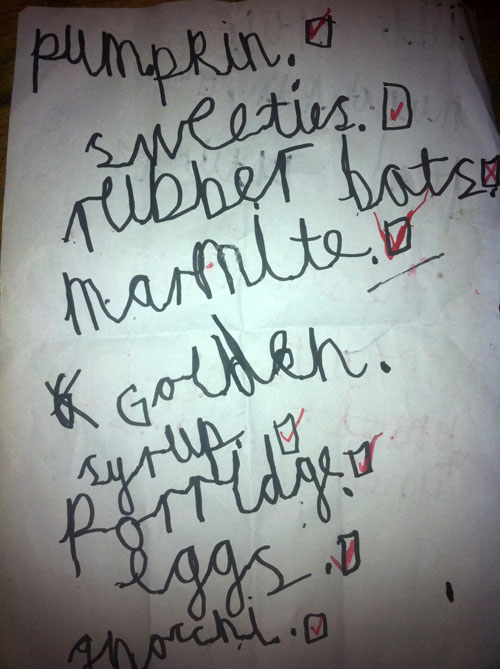 pumpkin.
sweeties.
rubber bats
marmite.
Golden.
syrup.
Porridge.
eggs.
gnocchi.